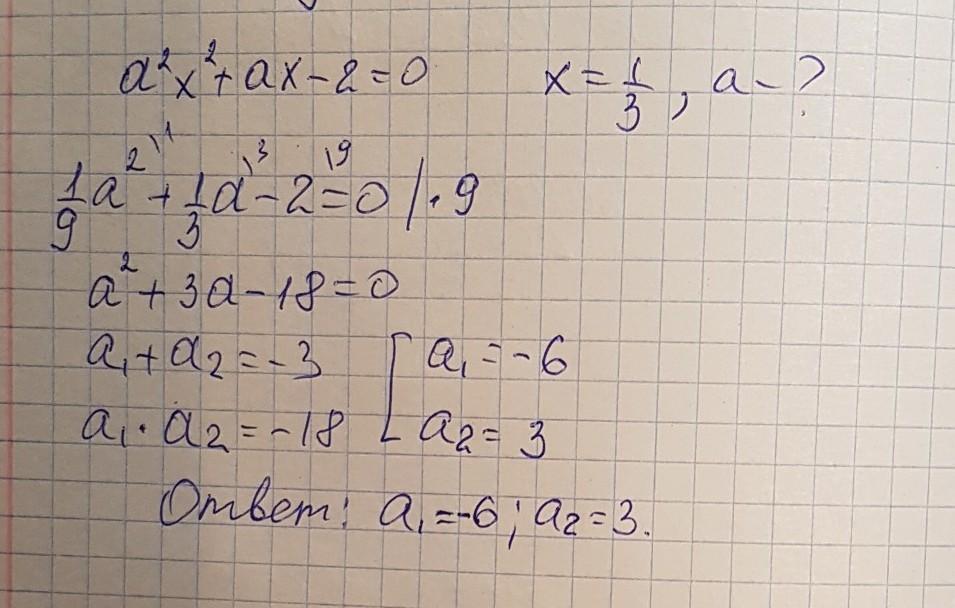 a²x² + ax − 2 = 0 x = 1/3 , a − ?
1/9 a² \1 + 1/3 a \3 − 2 \9 = 0 | · 9
a² + 3a − 18 = 0
a₁ + a₂ = −3 [ a₁ = −6
a₁ · a₂ = −18 [ a₂ = 3
Ответ: a₁ = −6 ; a₂ = 3.